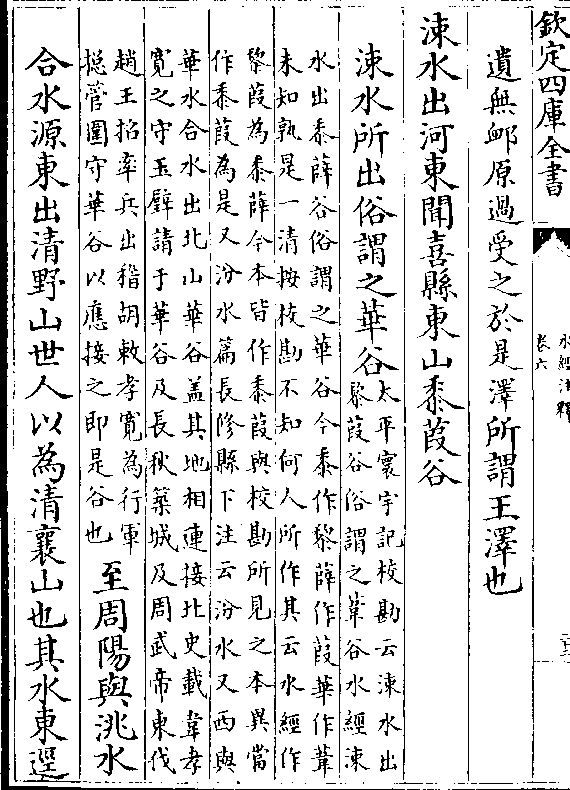 欽定四庫全書
水經注釋
卷六
遺無卹原過受之於是澤所謂王澤也
涑水出河東聞喜縣東山黍葭谷
涑水所出俗謂之華谷
太平寰宇記校勘云涑水出
黎葭谷俗謂之葦谷水經涑
水出黍薛谷俗謂之華谷今黍作黎薛作葭華作葦
未知孰是一清按校勘不知何人所作其云水經作
黎葭為黍薛今本皆作黍葭與校勘所見之本異當
作黍葭為是又汾水篇長修縣下注云汾水又西與
華水合水出北山華谷盖其地相連接北史載韋孝
寛之守玉壁請于華谷及長秋築城及周武帝東伐
趙王招率兵出稽胡敕孝寛為行軍
揔管圍守華谷以應接之即是谷也
至周陽與洮水
合水源東出清野山世人以為清襄山也其水東逕